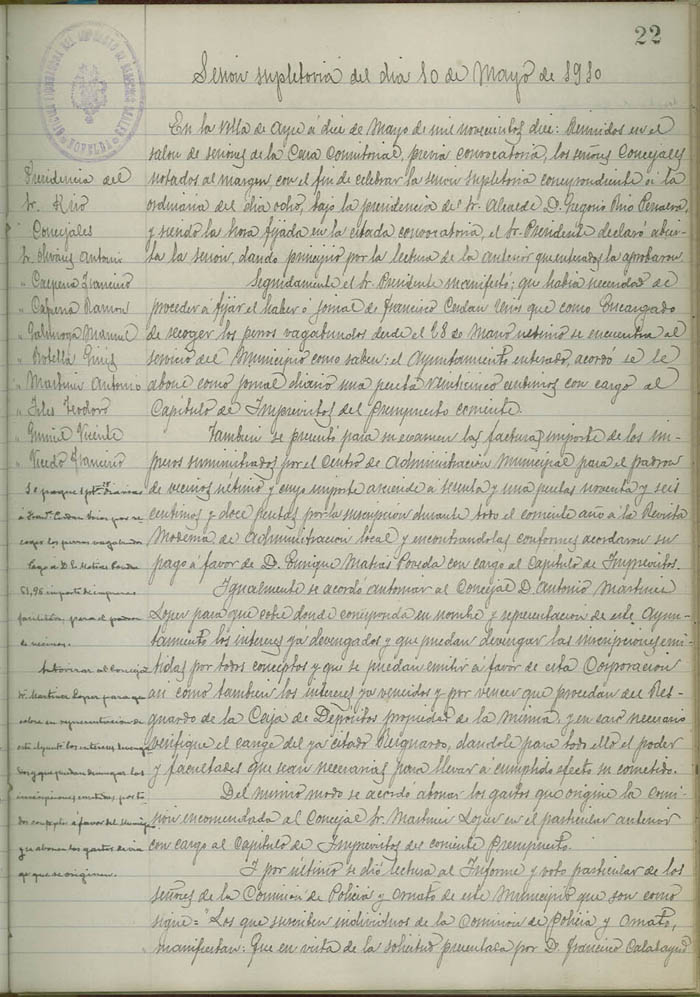 22
Sesion supletoria del dia 10 de Mayo de 1910
En la villa de Aspe á diez de Mayo de mil novecientos diez: Reunidos en el
salon de sesiones de la Casa Consistorial, previa convocatoria, los señores Concejales
notados al margen, con el fin de celebrar la sesion supletoria correspondiente á la
ordinaria del dia ocho, bajo la presidencia del Sr. Alcalde D. Gregorio Rico
y siendo la hora fijada en la citada convocatoria, el Sr. Presidente declaró abier-
ta la sesion, dando principio por la lectura de la anterior que enterados la aprobaron.
Seguidamente el Sr. Presidente manifestó; que habia necesidad de
proceder á fijar el haber ó jornal de Francisco Cerdan que como Encargado
de recoger los perros vagabundos desde el 28 de Marzo ultimo se encuentra al
servicio del Municipio como saben: el Ayuntamiento enterado, acordó se le
abone como jornal diario una peseta veinticinco centimos con cargo al
Capitulo de Imprevistos del Presupuesto corriente.
Tambien se presentó para su examen las facturas importe de los im-
presos suministrados por el Centro de Administracion Municipal para el padron
de vecinos ultimo y cuyo importe asciende á sesenta y una pesetas noventa y seis
centimos y doce pesetas por la suscripcion durante todo el corriente año á la Revista
Moderna de Administracion local y encontrandolas conformes acordaron su
pago á favor de D. Enrique Matias Poveda con cargo al Capitulo de Imprevistos.
Igualmente se acordó autorizar al Concejal D. Antonio Martinez
Lopez para que cobre donde corresponda en nombre y representacion de este Ayun-
tamiento los intereses ya devengados y que puedan devengar las inscripciones emi-
tidas por todos conceptos y que se puedan emitir á favor de esta Corporacion
asi como tambien los intereses ya vencidos y por vencer que procedan del Res-
guardo de la Caja de Depósitos propiedad de la misma, y en caso necesario
verifique el cange del ya citado Resguardo, dandole para todo ello el poder
y facultades que sean necesarias para llevar á cumplido efecto su cometido.
Del mismo modo se acordó abonar los gastos que origine la comi-
sion encomendada al Concejal Sr. Martinez Lopez en el particular anterior
con cargo al Capitulo de Imprevistos del corriente Presupuesto.
I por último se dió lectura al Informe y voto particular de los
señores de la Comision de Policia y ornato de este Municipio que son como
sigue= "Los que suscriben individuos de la Comision de Policia y Ornato,
manifiestan: Que en vista de la solicitud presentada por D. Francisco Calatayud
Presidencia del
Sr. Rico
Concejales
Sr. Alvarez Antonio
" Caparros Francisco
" Capena Ramon
" Galinsoga Manuel
" Botella Ginés
" Martinez Antonio
" Giles Teodoro
" Vicente
" Vicedo Francisco
Se pague
á Franco Cerdan por re-
coger los perros vagabundos
Pago á D. E. Matias Poveda
61,96 importe de impresos
facilitados para el padron
de vecinos.
Autorizar al Concejal
Sr. Martinez Lopez para que
cobre en representacion de
este Ayunto los intereses devenga-
dos y que puedan devengar las
inscripciones emitidas por to-
dos conceptos á favor del Municipio
y que abonen los gastos de via-
ge que se originen.